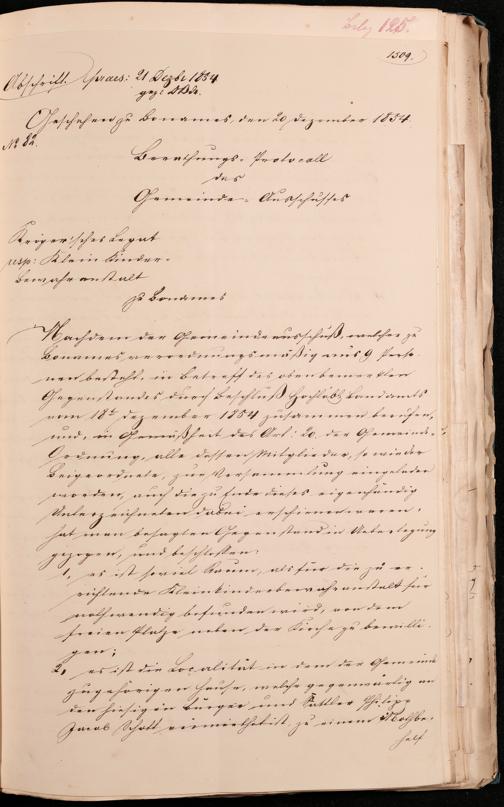 Beleg 125.
1509.
Abschrift. Praes: 21 Dezbr 1854
gez:
Geschehen zu Bonames, den 20 Dezember 1854.
No 82.
Berathungs-Protocoll
des
Gemeinde-Ausschusses
Kriger'sches Legat
resp: Klein Kinder-
bewahranstalt
zu Bonames
Nachdem der Gemeindeausschuß, welcher zu
Bonames verordnungsmäßig aus 9 Perso-
nen besteht, in Betreff des obenbemerkten
Gegenstandes durch Beschluß Hochlöbl Landamts
vom 18t Dezember 1854 zusammen berufen,
und, in Gemäßheit des Art: 20. der Gemeinde-
Ordnung, alle dessen Mitglieder, so wie der
Beigeordnete, zur Versammlung eingeladen
worden, auch die zu Ende dieses eigenhändig
Unterzeichneten dabei erschienen waren,
hat man besagten Gegenstand in Ueberlegung
gezogen, und beschlossen:
1, es ist soviel Raum, als für die zu er-
richtende Kleinkinderbewahranstalt für
nothwendig befunden wird, von dem
freien Platze neben der Kirche zu bewilli-
gen;
2, es ist die Localität in dem der Gemeinde
zugehörigen Hause, welche gegenwärtig an
den hiesigen Bürger und Sattler Philipp
Jacob Schott vermiethet ist, zu einem Nothbe-
helf